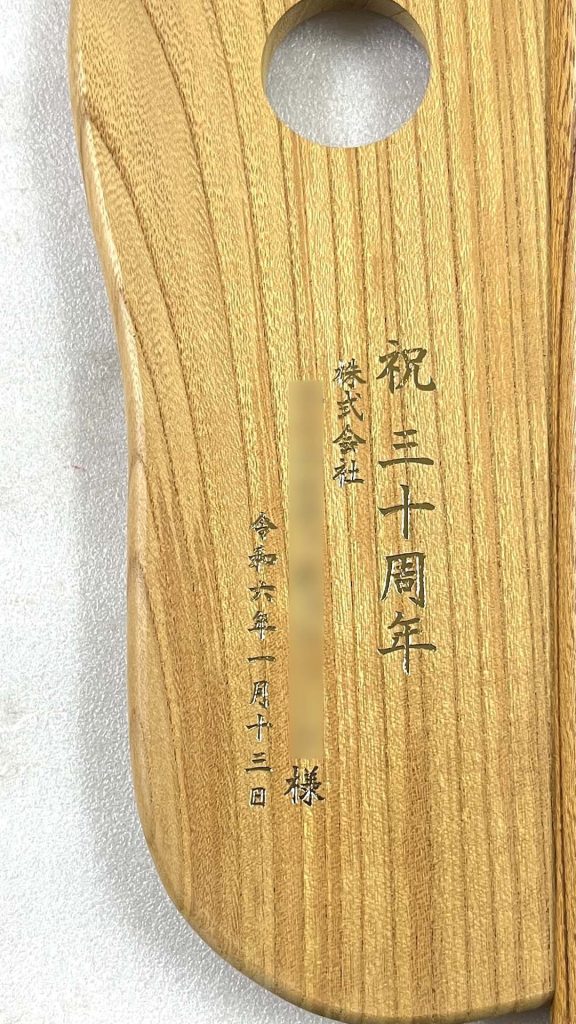 祝 三十周年
株式会社
様
令和六年一月十三日